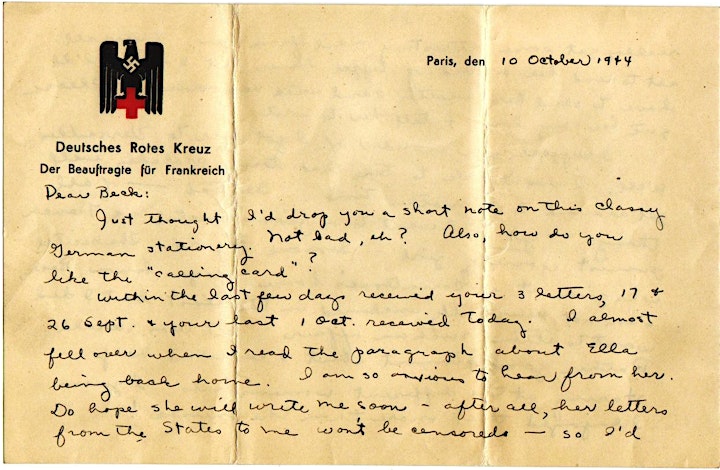 Paris, den 10 October 1944
Deutsches Rotes Kreuz
Der Beauftragte für Frankreich
Dear Beck:
Just thought I'd drop you a short note on this classy
German stationery. Not bad, eh? Also, how do you
like the "calling card"?
Within the last few days received your 3 letters, 17 &
26 Sept. & your last 1 Oct. received today. I almost
fell over when I read the paragraph about Ella
being back home. I am so anxious to hear from her.
Do hope she will write me soon - after all, her letters
from the States to me won't be censored - so I'd